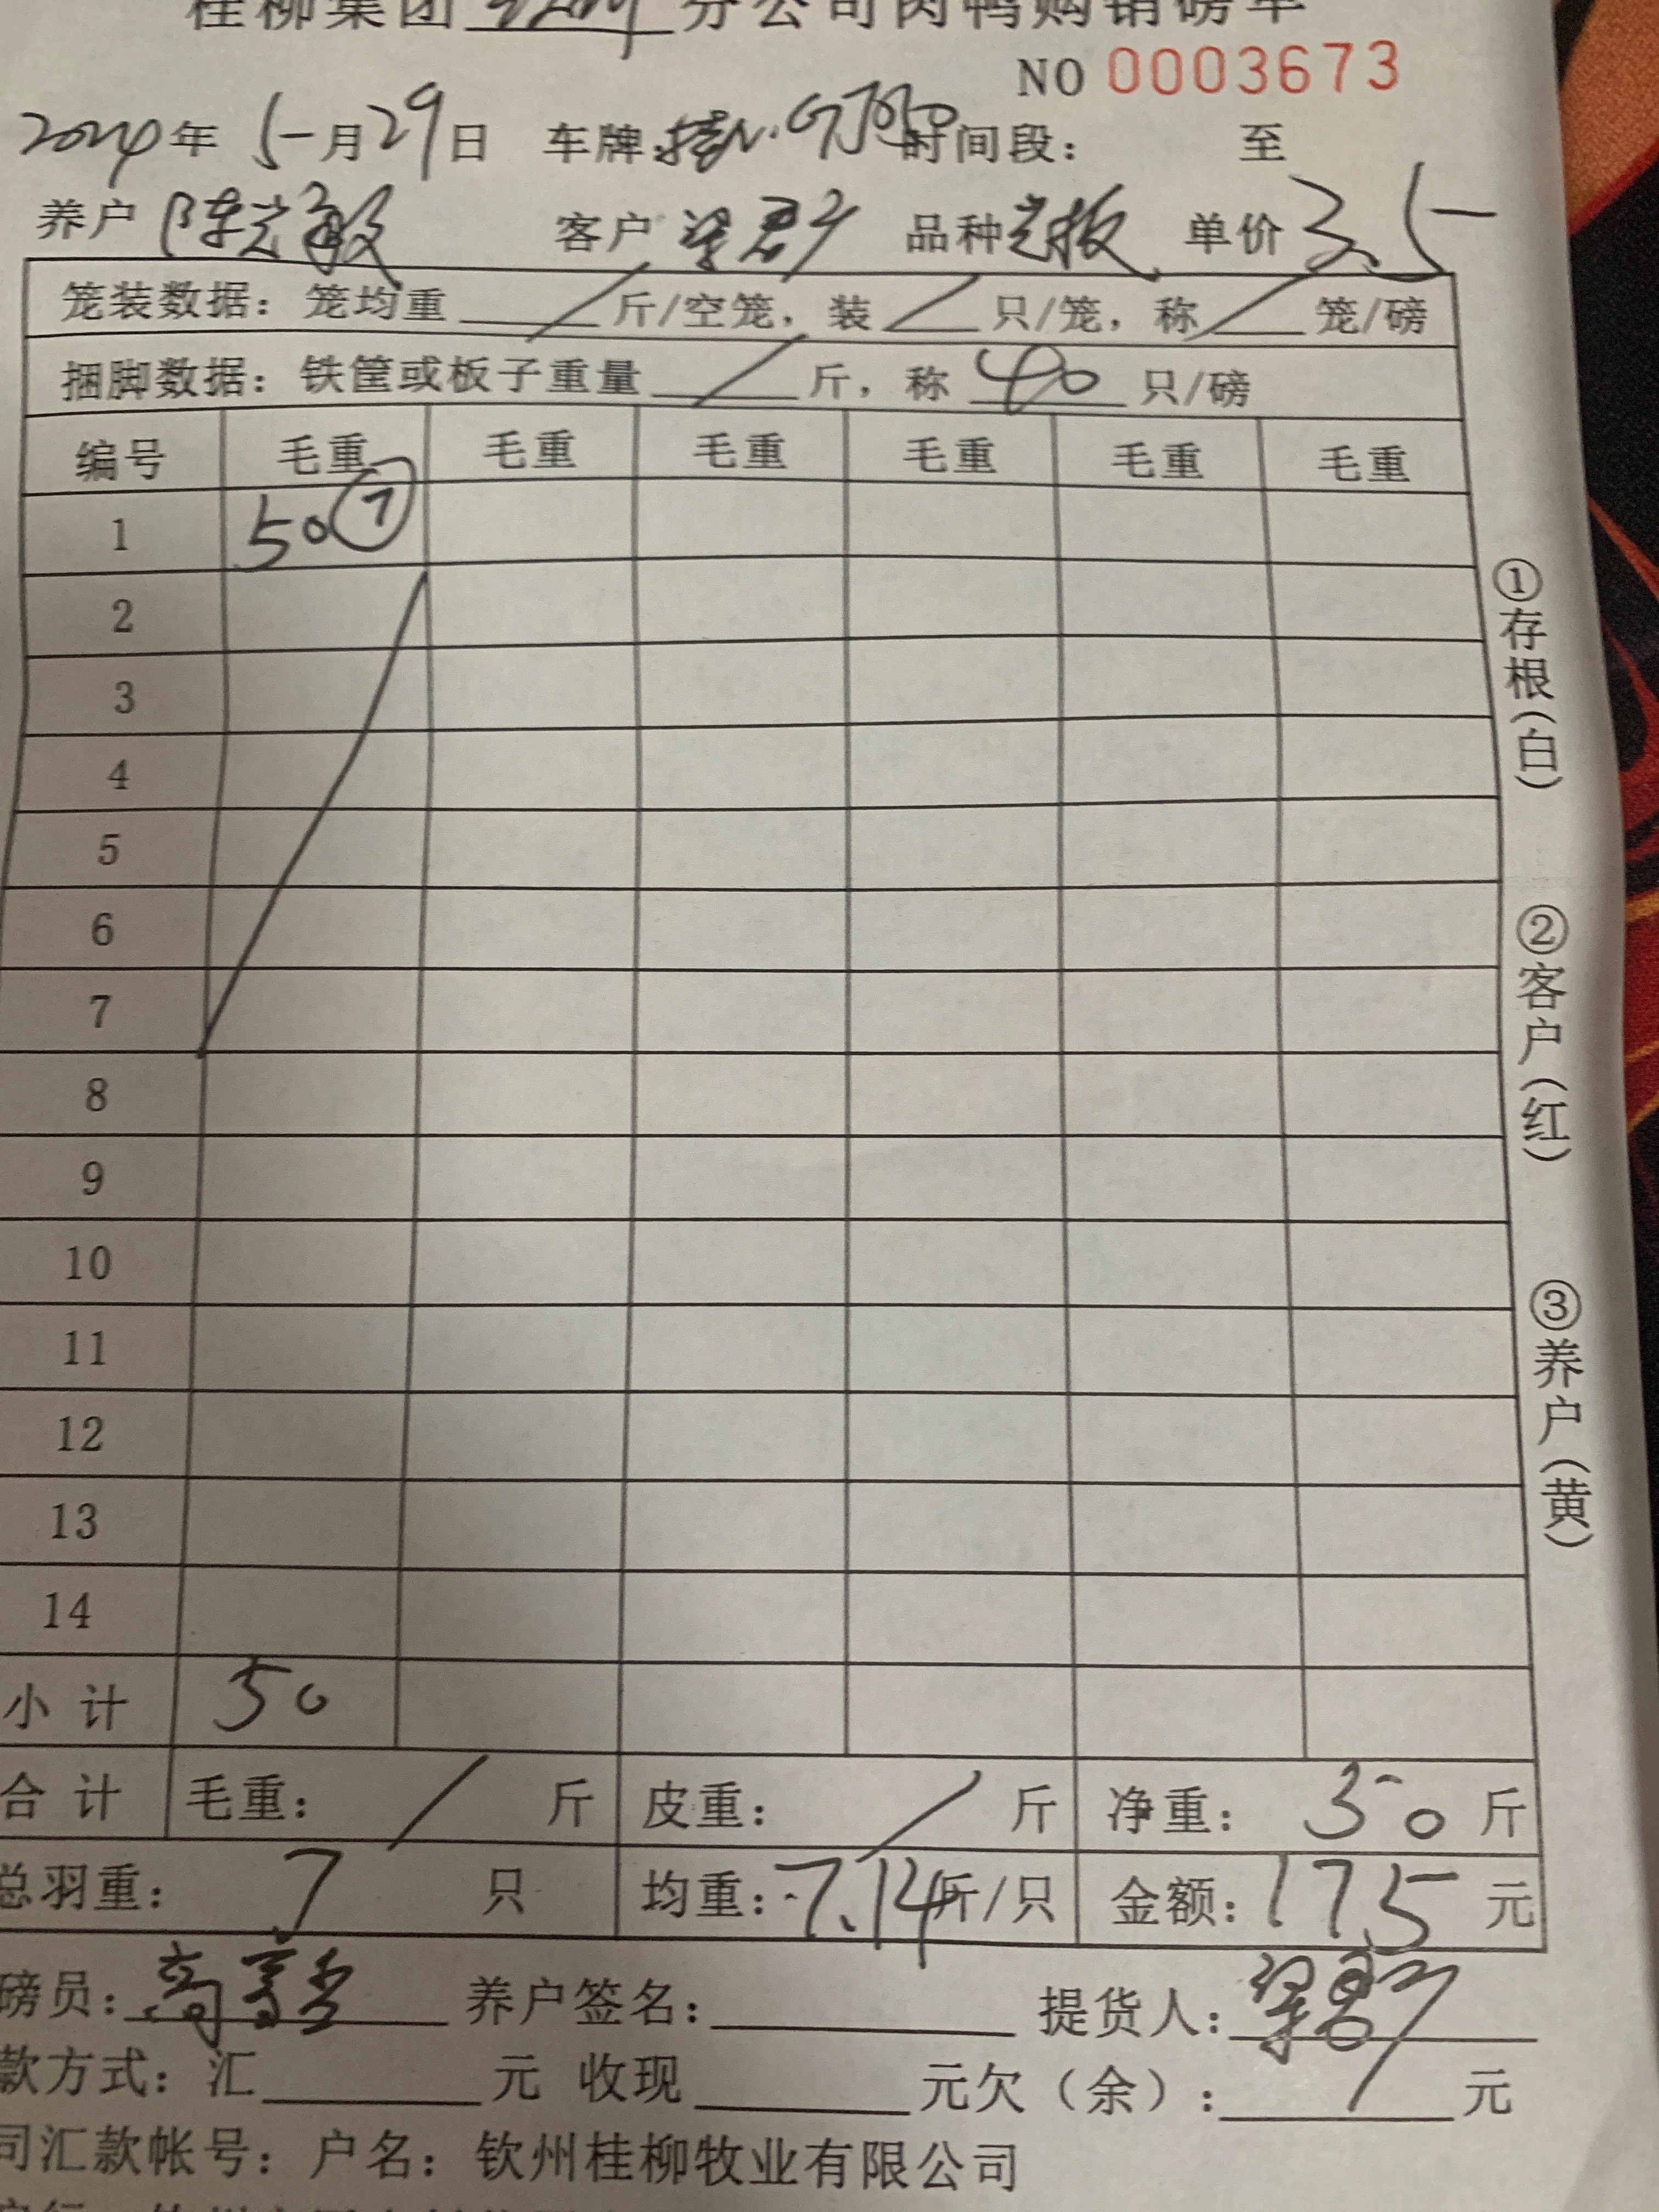 桂柳集团 分公司肉鸭购销磅单
NO 0003673
2024年 5月29日 车牌: 时间段: 至
养户 陈 敏 客户 梁君 品种 板 单价 3.5
笼装数据: 笼均重 / 斤/空笼, 装 / 只/笼, 称 / 笼/磅
捆脚数据: 铁筐或板子重量 / 斤, 称 40 只/磅
编号 毛重 毛重 毛重 毛重 毛重 毛重
1 50 ⑦
2
3
4
5
6
7
8
9
10
11
12
13
14
小计 50
合计 毛重: / 斤 皮重: / 斤 净重: 50 斤
总羽重: 7 只 均重: 7.14 斤/只 金额: 175 元
磅员: 高 养户签名: 提货人: 梁君
款方式: 汇 元 收现 元欠(余): 元
司汇款帐号: 户名: 钦州桂柳牧业有限公司
①存根(白)
②客户(红)
③养户(黄)